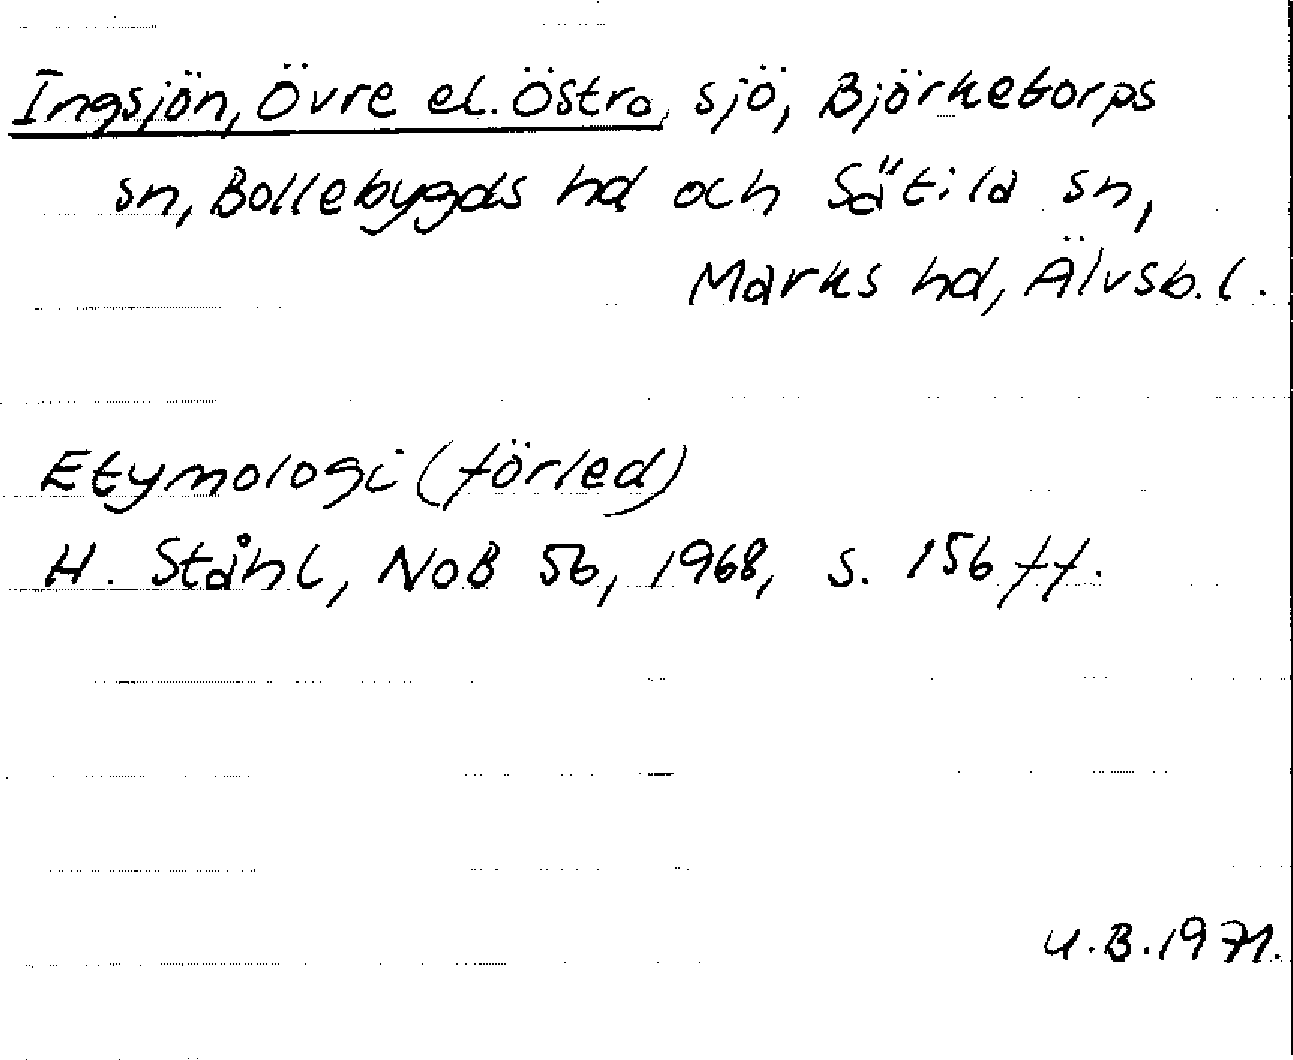 Ingsjön, Övre el. Östra, sjö, Björketorps
sn, Bollebygds hd och Sätila sn,
Marks hd, Älvsb. l.
Etymologi (förled)
H. Ståhl, NoB 56, 1968, s. 156 ff.
U.B. 1971.